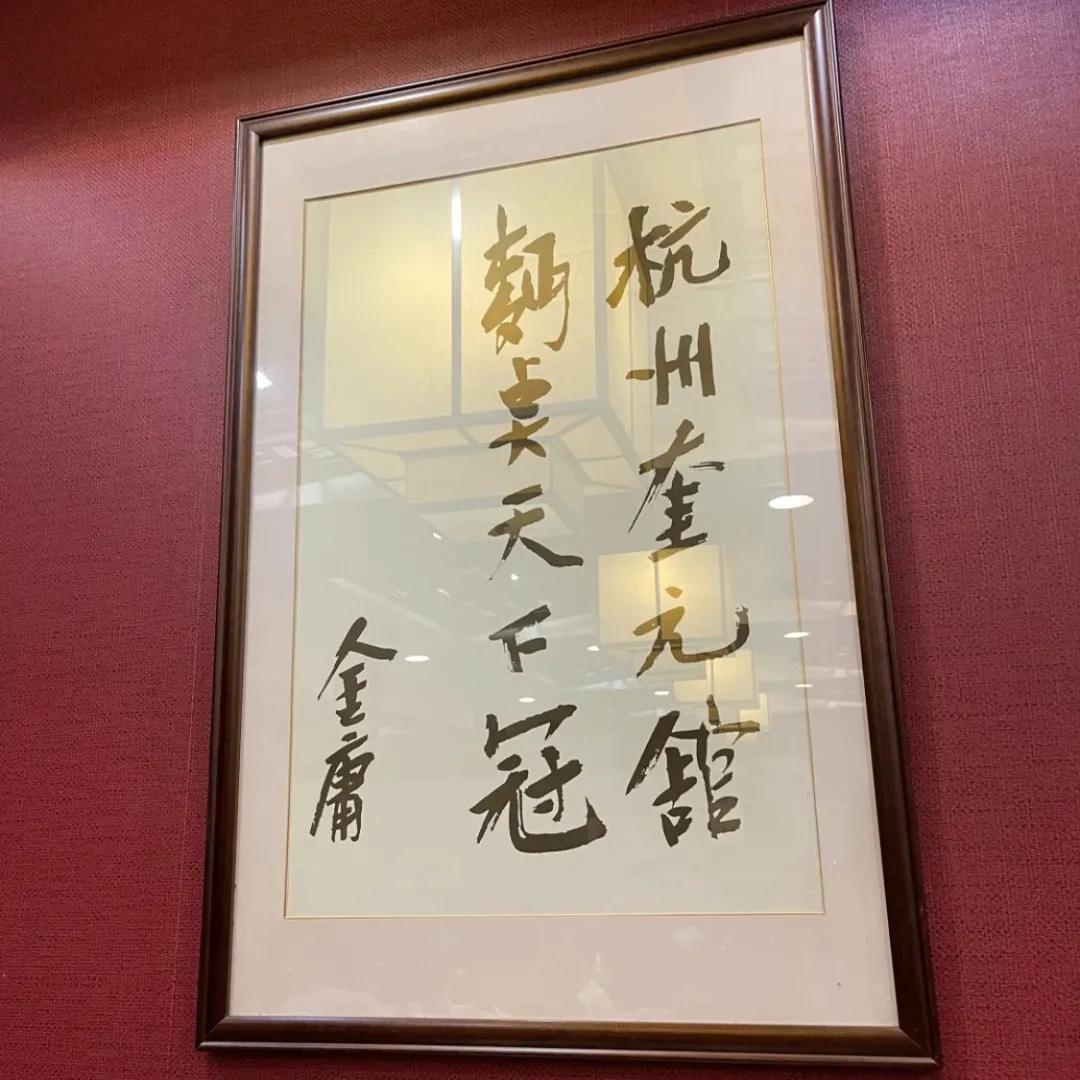 杭州奎元舘
麵点天下冠
金庸